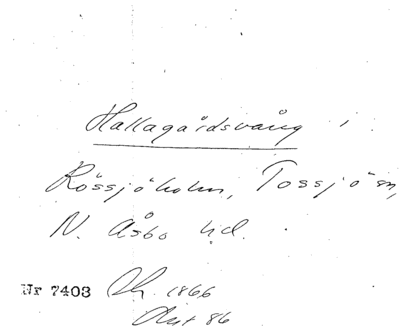 Hallagårdsvång i
Rössjöholm, Tossjö sn,
N. Åsbo hd.
Nr 7403 Dh. 1866
Akt 86